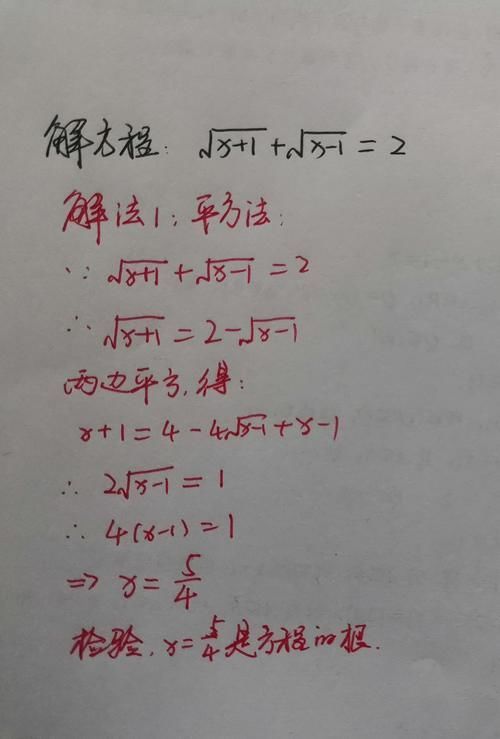 解方程: √(x+1) + √(x-1) = 2
解法1: 平方法:
∵ √(x+1) + √(x-1) = 2
∴ √(x+1) = 2 - √(x-1)
两边平方, 得:
x+1 = 4 - 4√(x-1) + x - 1
∴ 2√(x-1) = 1
∴ 4(x-1) = 1
=> x = 5/4
检验, x = 5/4 是方程的根.